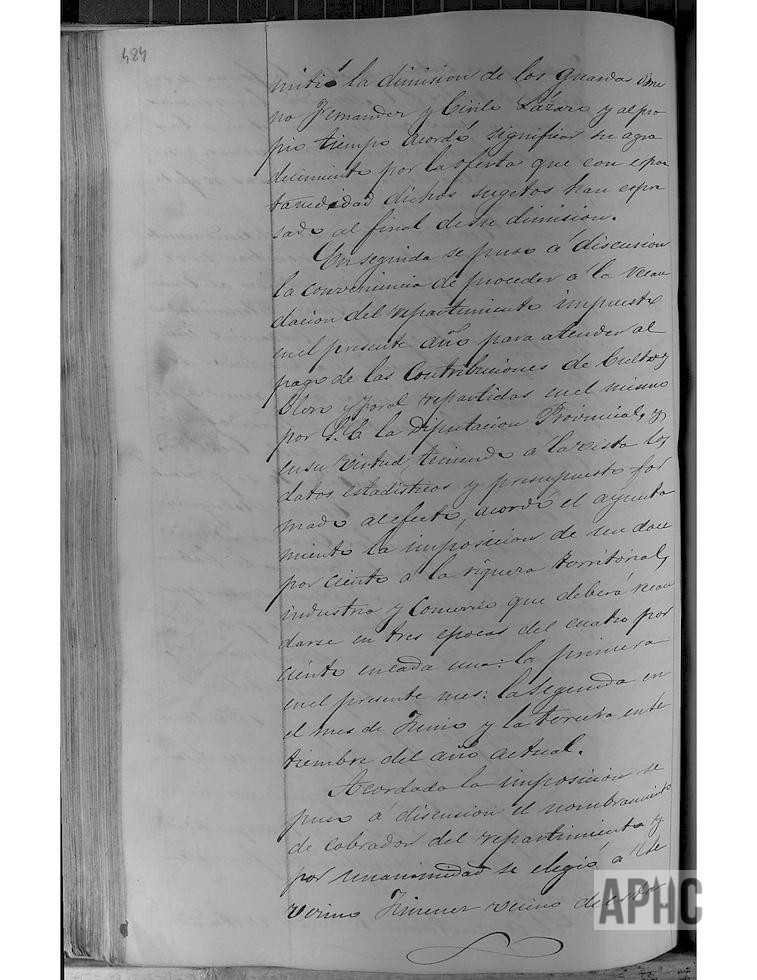 484
mitió la dimision de los guardas
no Fernandez y Cirilo Lázaro y al pro
pio tiempo acordó significar su agra
decimiento por la oferta que con espon
taneidad dichos sugetos han espre
sado al final de su dimision.
En seguida se puso á discusion
la conveniencia de proceder á la recau
dacion del repartimiento impuesto
en el presente año para atender al
pago de las Contribuciones de Culto y
Clero y foral repartidas en el mismo
por S.E. la Diputacion Provincial, y
en su virtud, teniendo á la vista los
datos estadisticos y presupuesto for
mado al efecto, acordó el ayunta
miento la imposicion de un doce
por ciento á la riqueza territorial,
industria y Comercio que deberá recau
darse en tres epocas del cuatro por
ciento en cada una: la primera
en el presente mes: la segunda en
el mes de Junio y la tercera en Se
tiembre del año actual.
Acordada la imposicion se
puso á discusion el nombramiento
de cobrador del repartimiento y
por unanimidad se eligió á
Jimenez vecino de esta
APHC